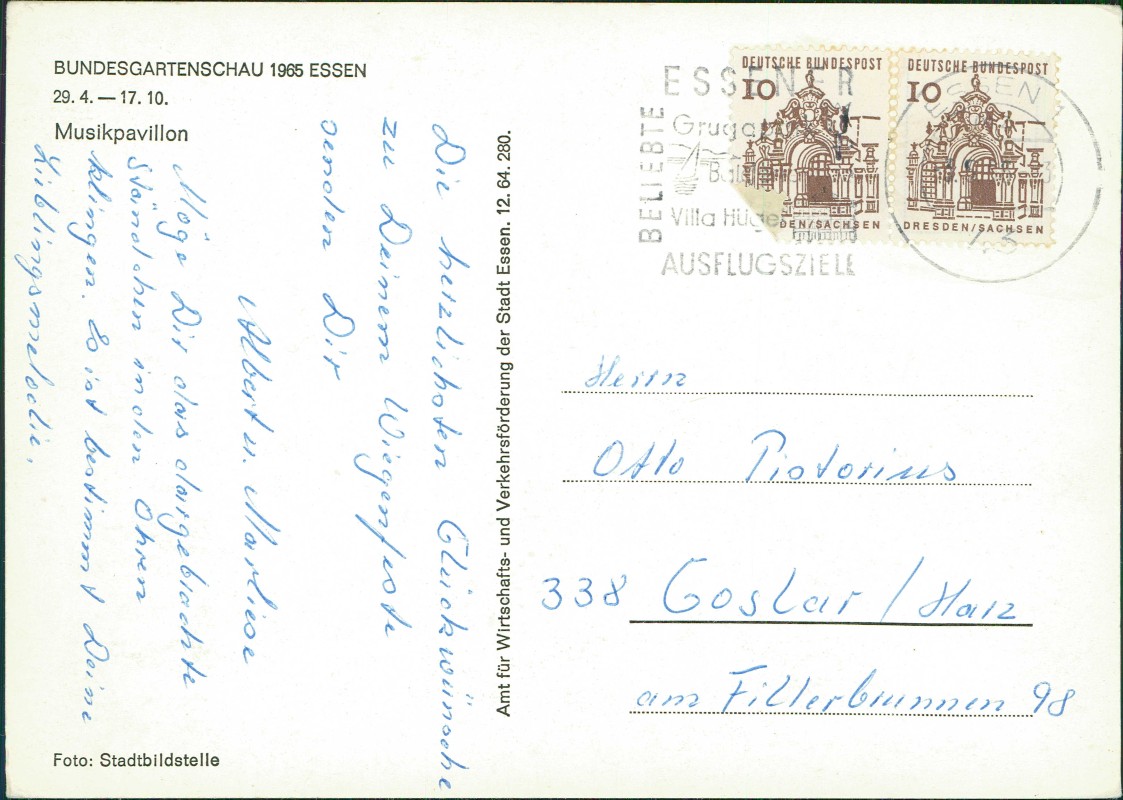 BUNDESGARTENSCHAU 1965 ESSEN
29. 4. — 17. 10.
Musikpavillon
Die herzlichsten Glückwünsche
zu Deinem Wiegenfeste
senden Dir
Albert u. Marliese
Möge Dir das dargebrachte
Ständchen in den Ohren
klingen. Es ist bestimmt Deine
Lieblingsmelodie.
Foto: Stadtbildstelle
Amt für Wirtschafts- und Verkehrsförderung der Stadt Essen. 12. 64. 280.
BELIEBTE
ESSENER
Villa Hügel
AUSFLUGSZIELE
DEUTSCHE BUNDESPOST
10
DEN/SACHSEN
DEUTSCHE BUNDESPOST
10
DRESDEN/SACHSEN
ESSEN
Herrn
Otto Pistorius
338 Goslar / Harz
am Fillerbrunnen 98